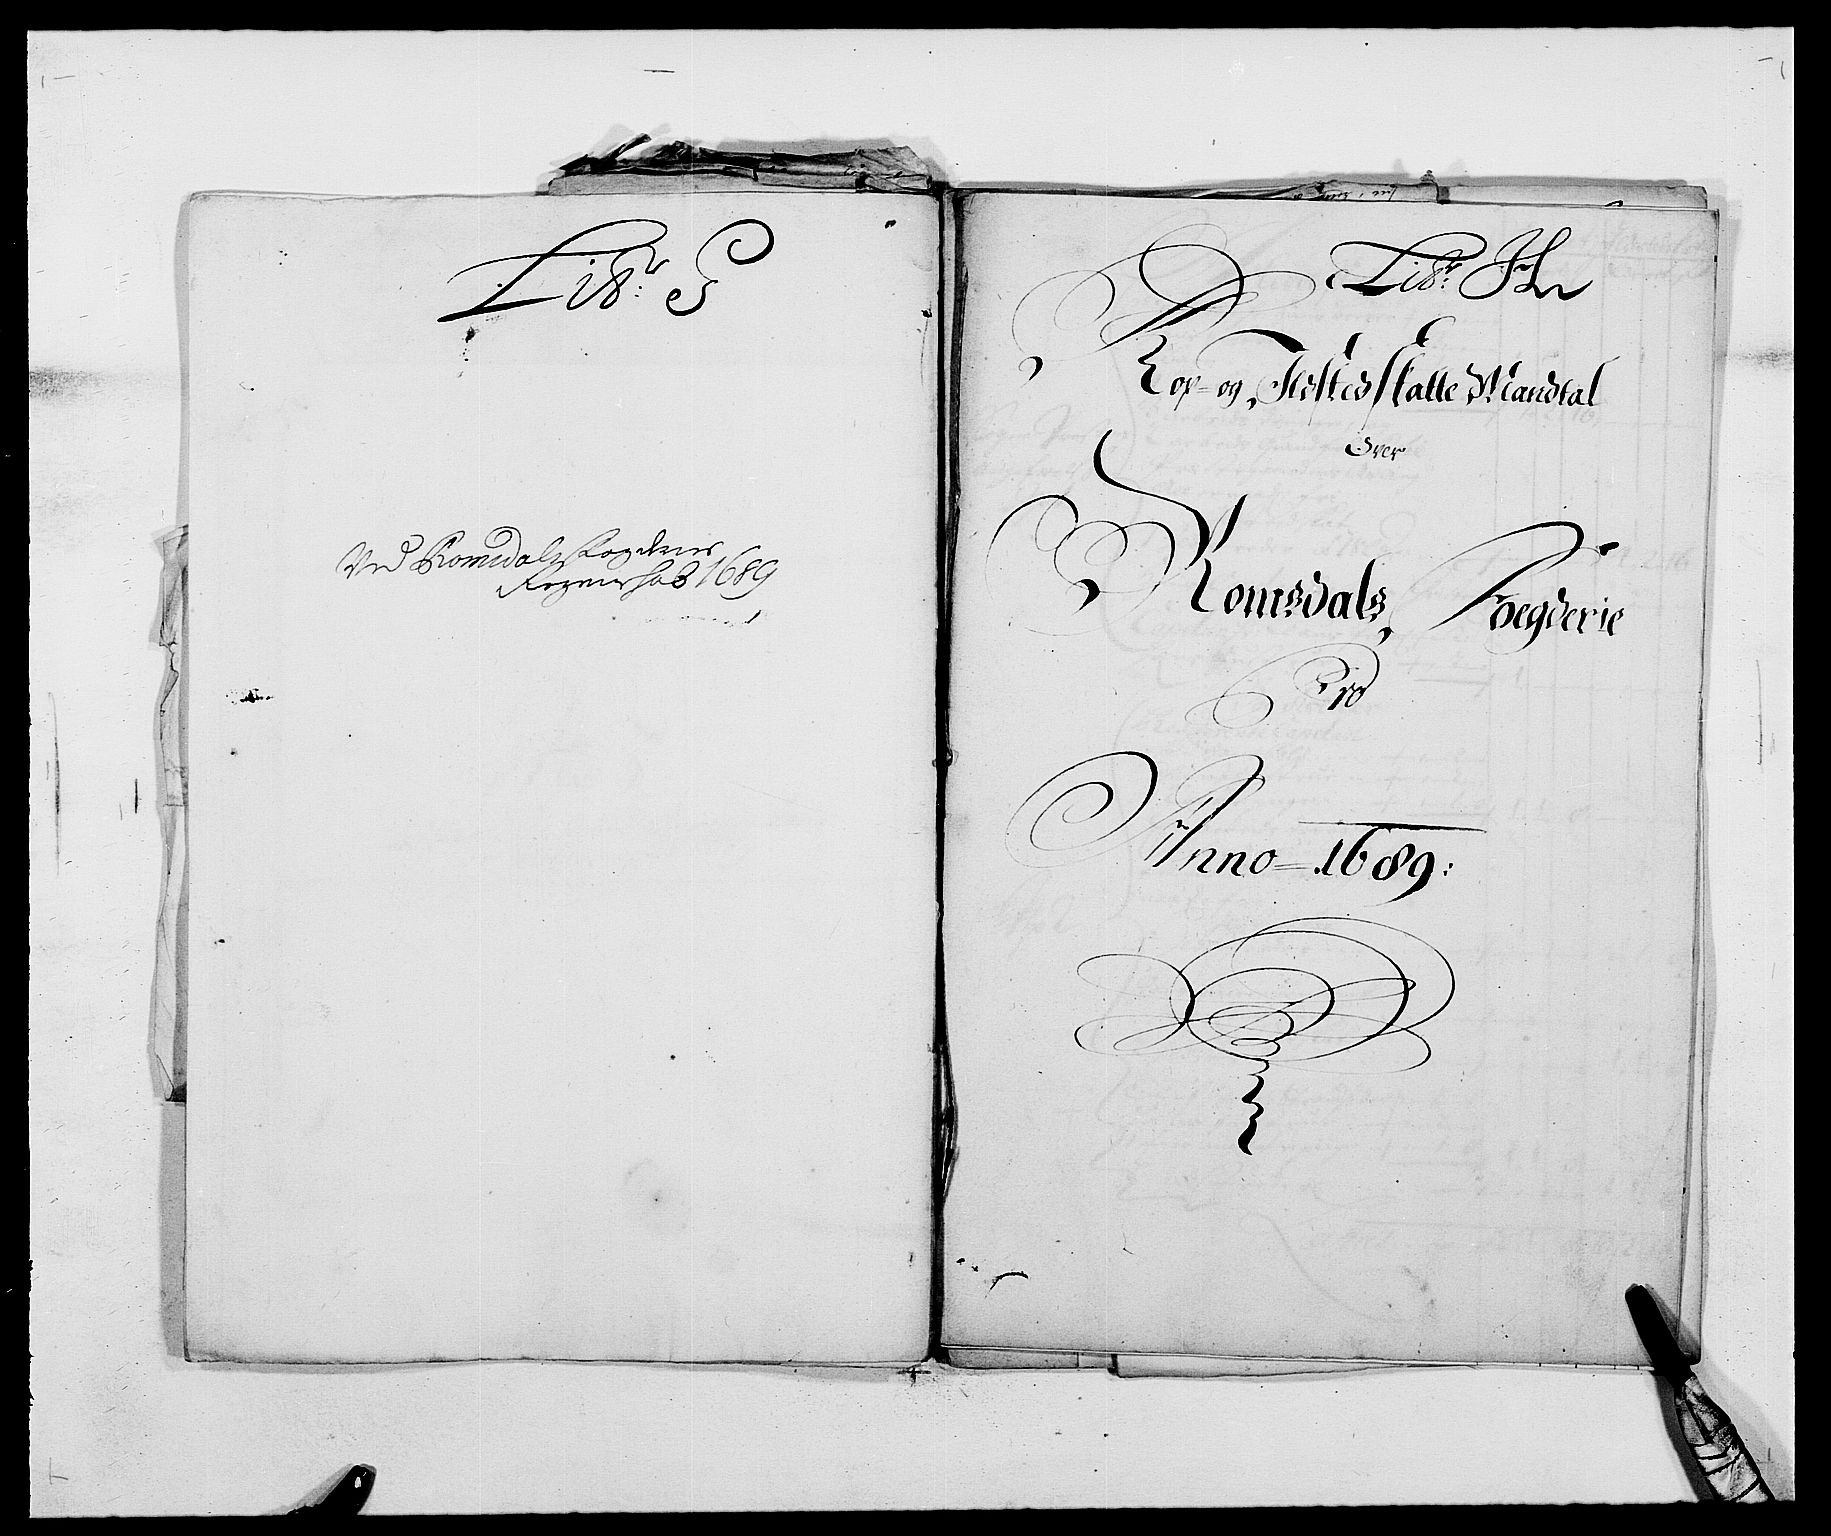 Litr: G
Ved Romsdals Fogderies
Regenschab 1689
Litr: H
Kop- og Ildsted skatte Mandtal
Over
Romsdals Foegderie
Pro
Anno 1689: